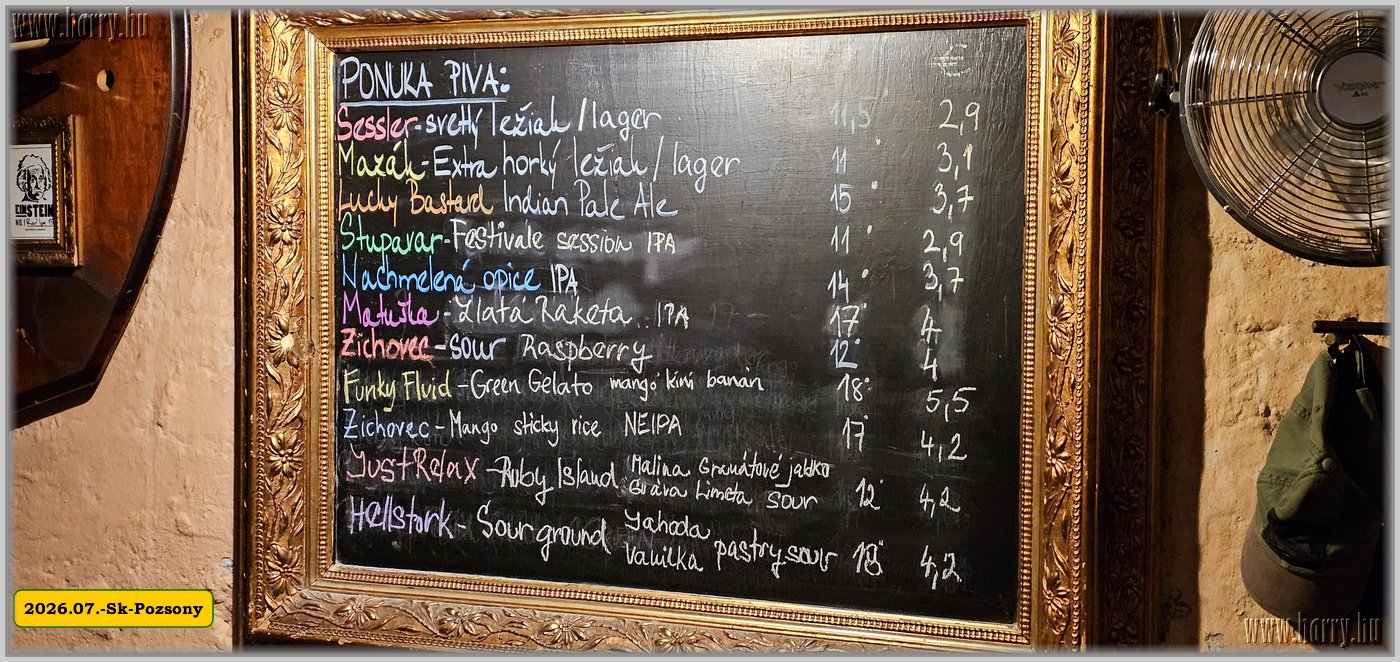 www.horry.hu
PONUKA PIVA: €
Sessler-svetlý ležiak / lager 11,5° 2,9
Mazák-Extra horký ležiak / lager 11° 3,1
Lucky Bastard Indian Pale Ale 15° 3,7
Stupavar-Festivale session IPA 11° 2,9
Nachmelená opice IPA 14° 3,7
Matuška-Zlatá Raketa IPA 17° 4
Zichovec-sour Raspberry 12° 4
Funky Fluid-Green Gelato mango kiwi banán 18° 5,5
Zichovec-Mango sticky rice NEIPA 17° 4,2
JustRelax-Ruby Island Malina Granátové jablko
Guava Limeta sour 12° 4,2
Hellstork-Sour ground Jahoda
Vanilka pastry sour 18° 4,2
EINSTEIN
2026.07.-Sk-Pozsony
www.horry.hu